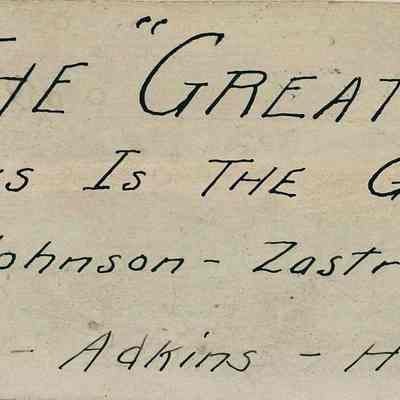 THE "GREAT
s Is THE G
Johnson - Zastr
- Adkins - H